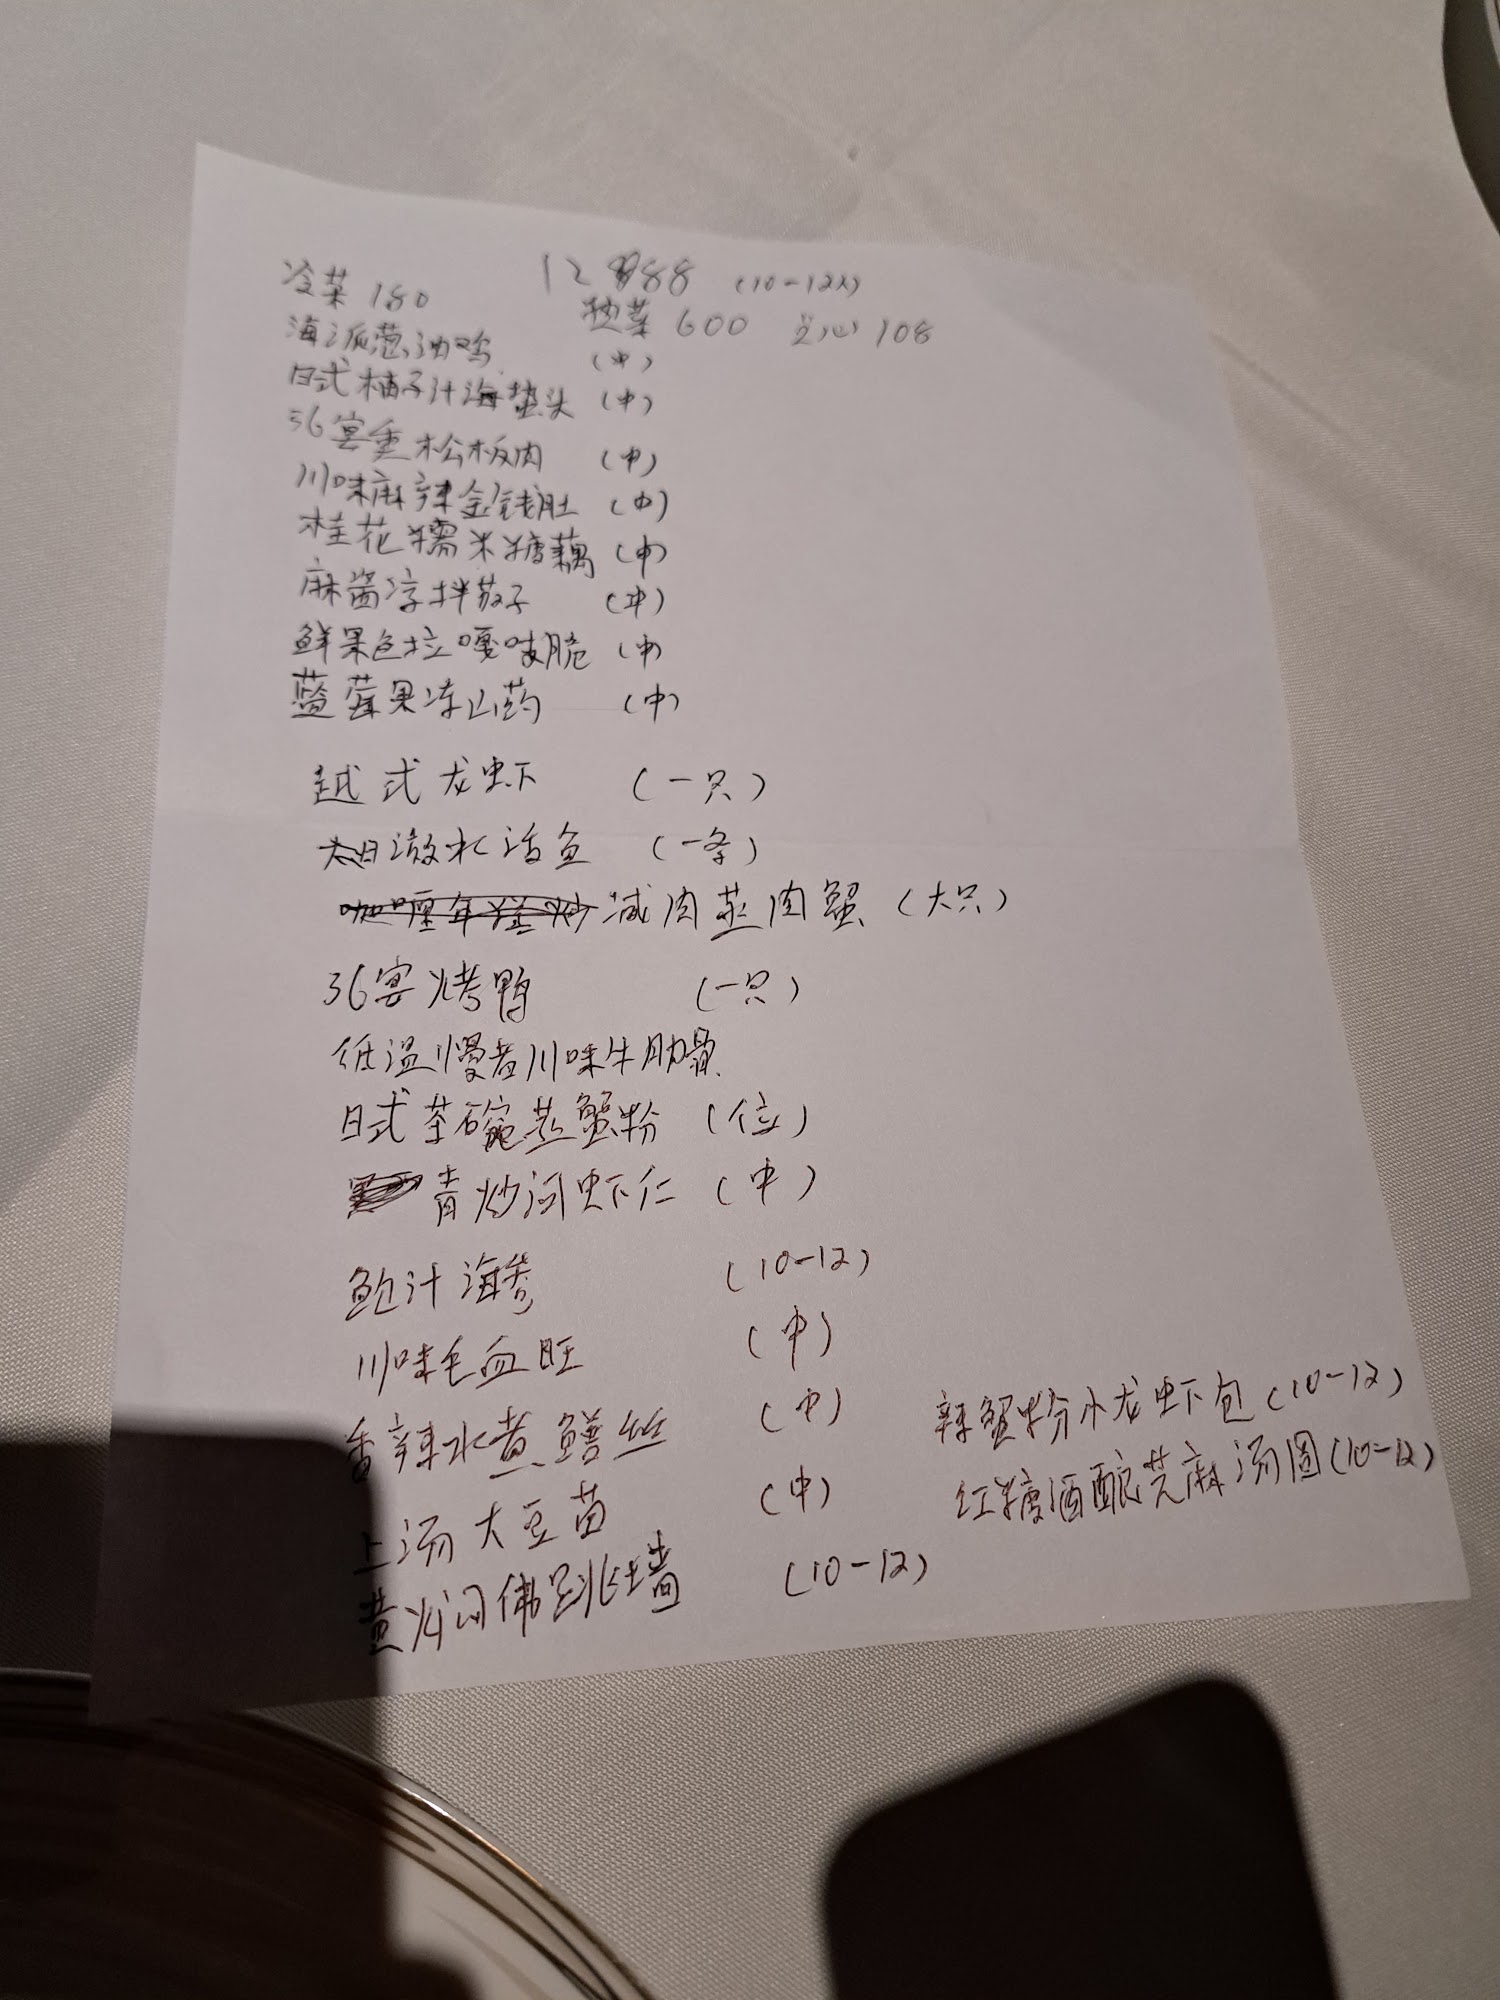 冷菜 180
12 988 (10-12人)
热菜 600 点心 108
海派葱油鸡 (中)
日式柚子汁海蜇头 (中)
36宴熏松板肉 (中)
川味麻辣金钱肚 (中)
桂花糯米糖藕 (中)
麻酱凉拌茄子 (中)
鲜果色拉嘎吱脆 (中)
蓝莓果冻山药 (中)
越式龙虾 (一只)
水活鱼 (一条)
咸肉蒸肉蟹 (大只)
36宴烤鸭 (一只)
低温慢煮川味牛肋骨
日式茶碗蒸蟹粉 (位)
青炒河虾仁 (中)
鲍汁海参 (10-12)
川味毛血旺 (中)
香辣水煮鳝丝 (中)
上汤大豆苗 (中)
黄焖佛跳墙 (10-12)
辣蟹粉小龙虾包 (10-12)
红糖酒酿芝麻汤圆 (10-12)